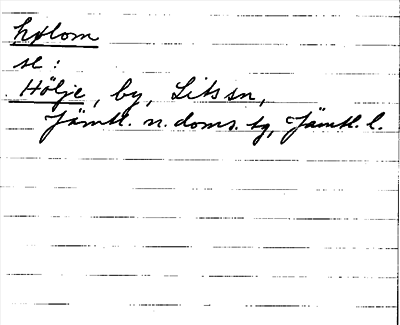 hølom
se:
Hölje, by, Lits sn,
Jämtl. n. doms. tg, Jämtl. l.